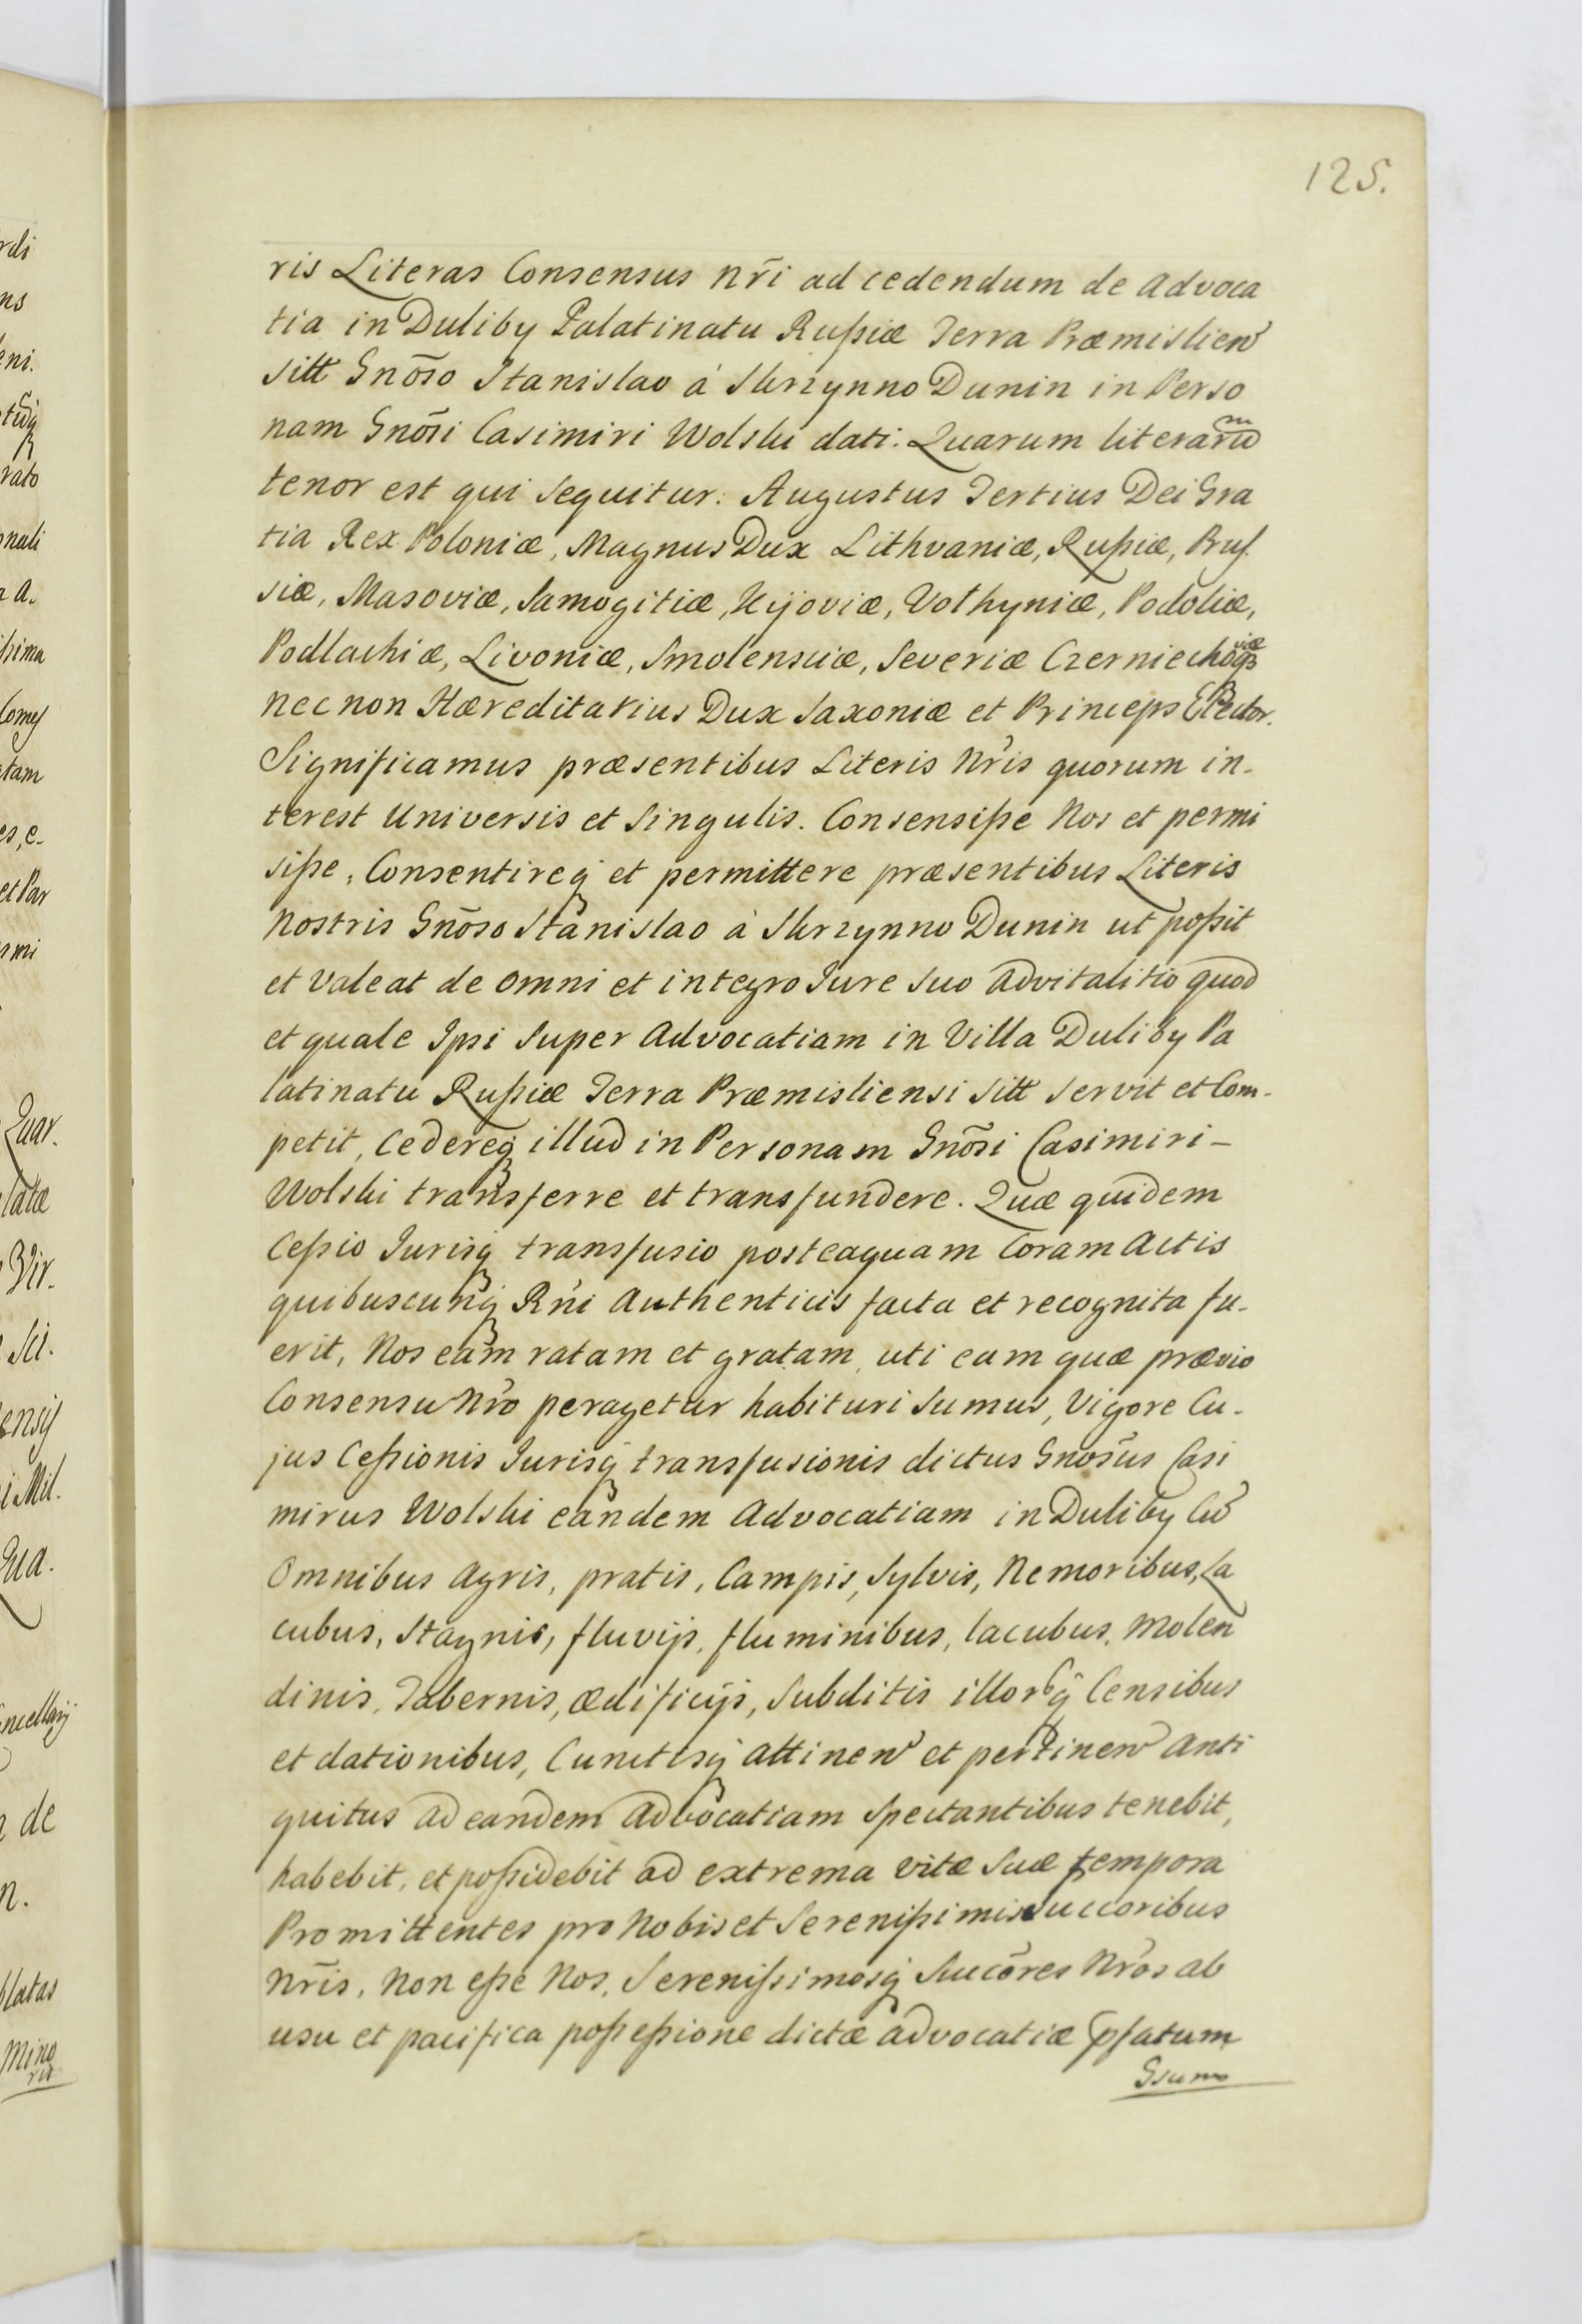 125.
ris Literas Consensus nr̃i ad cedendum de advoca
tia in Duliby Palatinatu Russiæ Terra Præmislien̄
sitt Gnõso Stanislao à Skrzynno Dunin in Perso
nam Gnõsi Casimiri Wolski dati. Quarum literarũ
tenor est qui sequitur: Augustus Tertius Dei Gra
tia Rex Poloniæ, Magnus Dux Lithvaniæ, Russiæ, Prus
siæ, Masoviæ, Samogitiæ, Kijoviæ, Volhyniæ, Podoliæ,
Podlachiæ, Livoniæ, Smolensciæ, Severiæ Czerniechoviæq́
nec non Hæreditarius Dux Saxoniæ et Princeps Elector.
Significamus præsentibus Literis Nr̃is quorum in-
terest Universis et Singulis. Consensisse Nos et permi
sisse, Consentireq́ et permittere præsentibus Literis
Nostris Gnõso Stanislao à Skrzynno Dunin ut possit
et valeat de omni et integro Jure suo advitalitio quod
et quale Ipsi super Advocatiam in Villa Duliby Pa
latinatu Russiæ Terra Præmisliensi sitt servit et Com-
petit, Cedereq́ illud in Personam Gnõsi Casimiri-
Wolski transferre et transfundere. Quæ quidem
Cessio Jurisq́ transfusio posteaquam Coram Actis
quibuscunq́ Rñi Authenticis facta et recognita fu-
erit, Nos eam ratam et gratam, uti eam quæ prævio
Consensu Nr̃o peragetur habituri sumus, Vigore Cu-
jus Cessionis Jurisq́ transfusionis dictus Gnõsus Casi
mirus Wolski eandem Advocatiam in Duliby Cũ
Omnibus agris, pratis, Campis, Sylvis, Nemoribus, La
cubus, Stagnis, fluvijs, fluminibus, lacubus, Molen
dinis, Tabernis, ædificijs, Subditis illorq́ Censibus
et dationibus, Cunctisq́ attinen̄ et pertinen̄ anti
quitus ad eandem advocatiam spectantibus tenebit,
habebit, et possidebit ad extrema vitæ suæ tempora
Promittentes pro Nobis et Serenissimis Succoribus
Nr̃is, Non esse Nos, Serenissimosq́ Succõres Nr̃os ab
usu et pacifica possessione dictæ advocatiæ p̃fatum